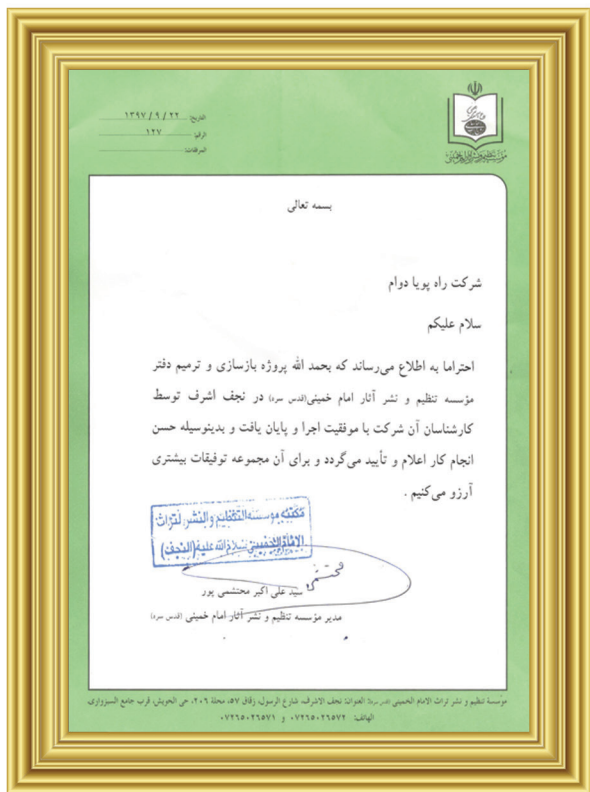 التاريخ: ١٣٩٧ / ٩ / ٢٢
الرقم: ١٢٧
المرفقات:
بسمه تعالی
شرکت راه پویا دوام
سلام علیکم
احتراما به اطلاع می‌رساند که بحمد الله پروژه بازسازی و ترمیم دفتر
مؤسسه تنظیم و نشر آثار امام خمینی(قدس سره) در نجف اشرف توسط
کارشناسان آن شرکت با موفقیت اجرا و پایان یافت و بدینوسیله حسن
انجام کار اعلام و تأیید می‌گردد و برای آن مجموعه توفیقات بیشتری
آرزو می‌کنیم .
مؤسسه التنظیم والنشر لتراث
الامام الخمینی سلام الله علیه (النجف)
سید علی اکبر محتشمی پور
مدیر مؤسسه تنظیم و نشر آثار امام خمینی (قدس سره)
مؤسسة تنظیم و نشر تراث الامام الخمینی (قدس سره) العنوان: نجف الاشرف، شارع الرسول، زقاق ٥٧، محلة ٢٠٦، حی الحویش، قرب جامع السبزواری.
الهاتف: ٠٧٢٦٥٠٢٦٥٧٢ و ٠٧٢٦٥٠٢٦٥٧١